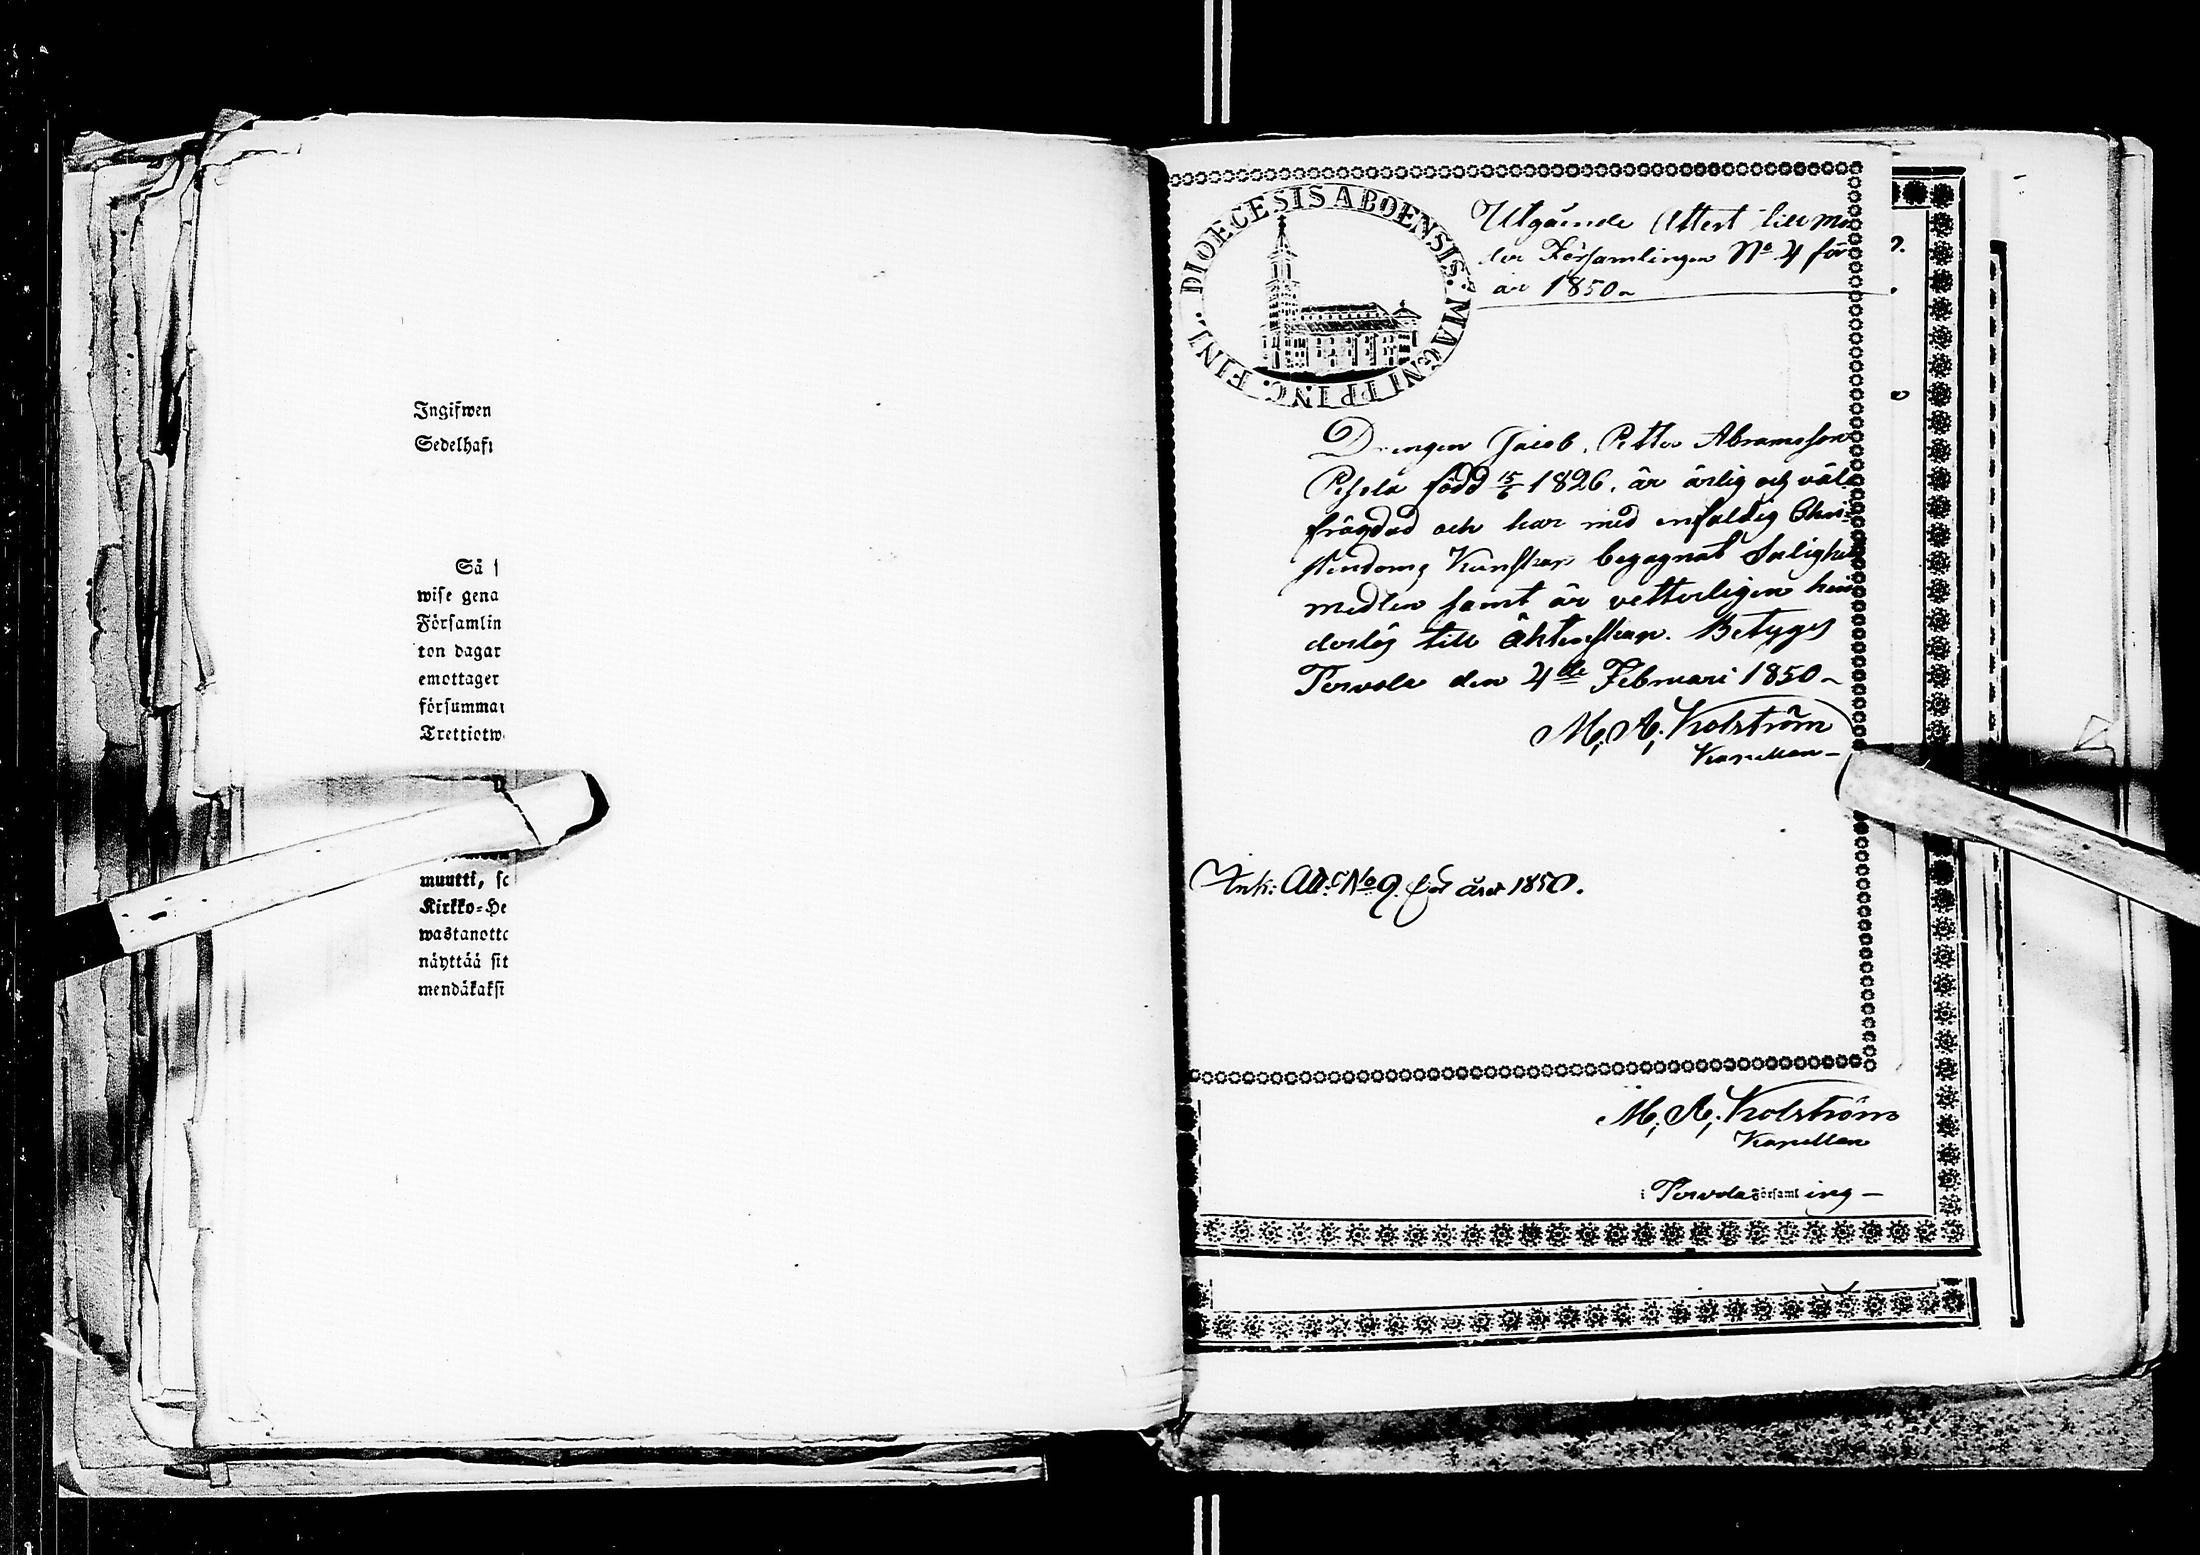 Ingifwen
Sedelhaf
Så
wise gena
Församlin
ton dagar
emottager
försummat
Trettiotw
muutti, so
Kirkko-He
wastanotto
näyttää sit
mendäkaksi
DIOECESIS ABOENSIS. MAGNI PRINC. FINL.
Utgående Attest till mo
der Församlingen No 4 för
år 1850~
Drengen Jacob Petter Abramsson
född 15/6 1826, är ärlig och väl
frägdad och har med enfaldig Chri-
stendoms Kunskap begagnat Salighets
medlen samt är vetterligen hin
derlös till äktenskap. Betygas
Tervola den 4de Februari 1850~
M. A. Kolström
Kapellan -
Ink: Att: No 9. för året 1850.
M. A. Kolström
Kapellan
i Tervola Församling -